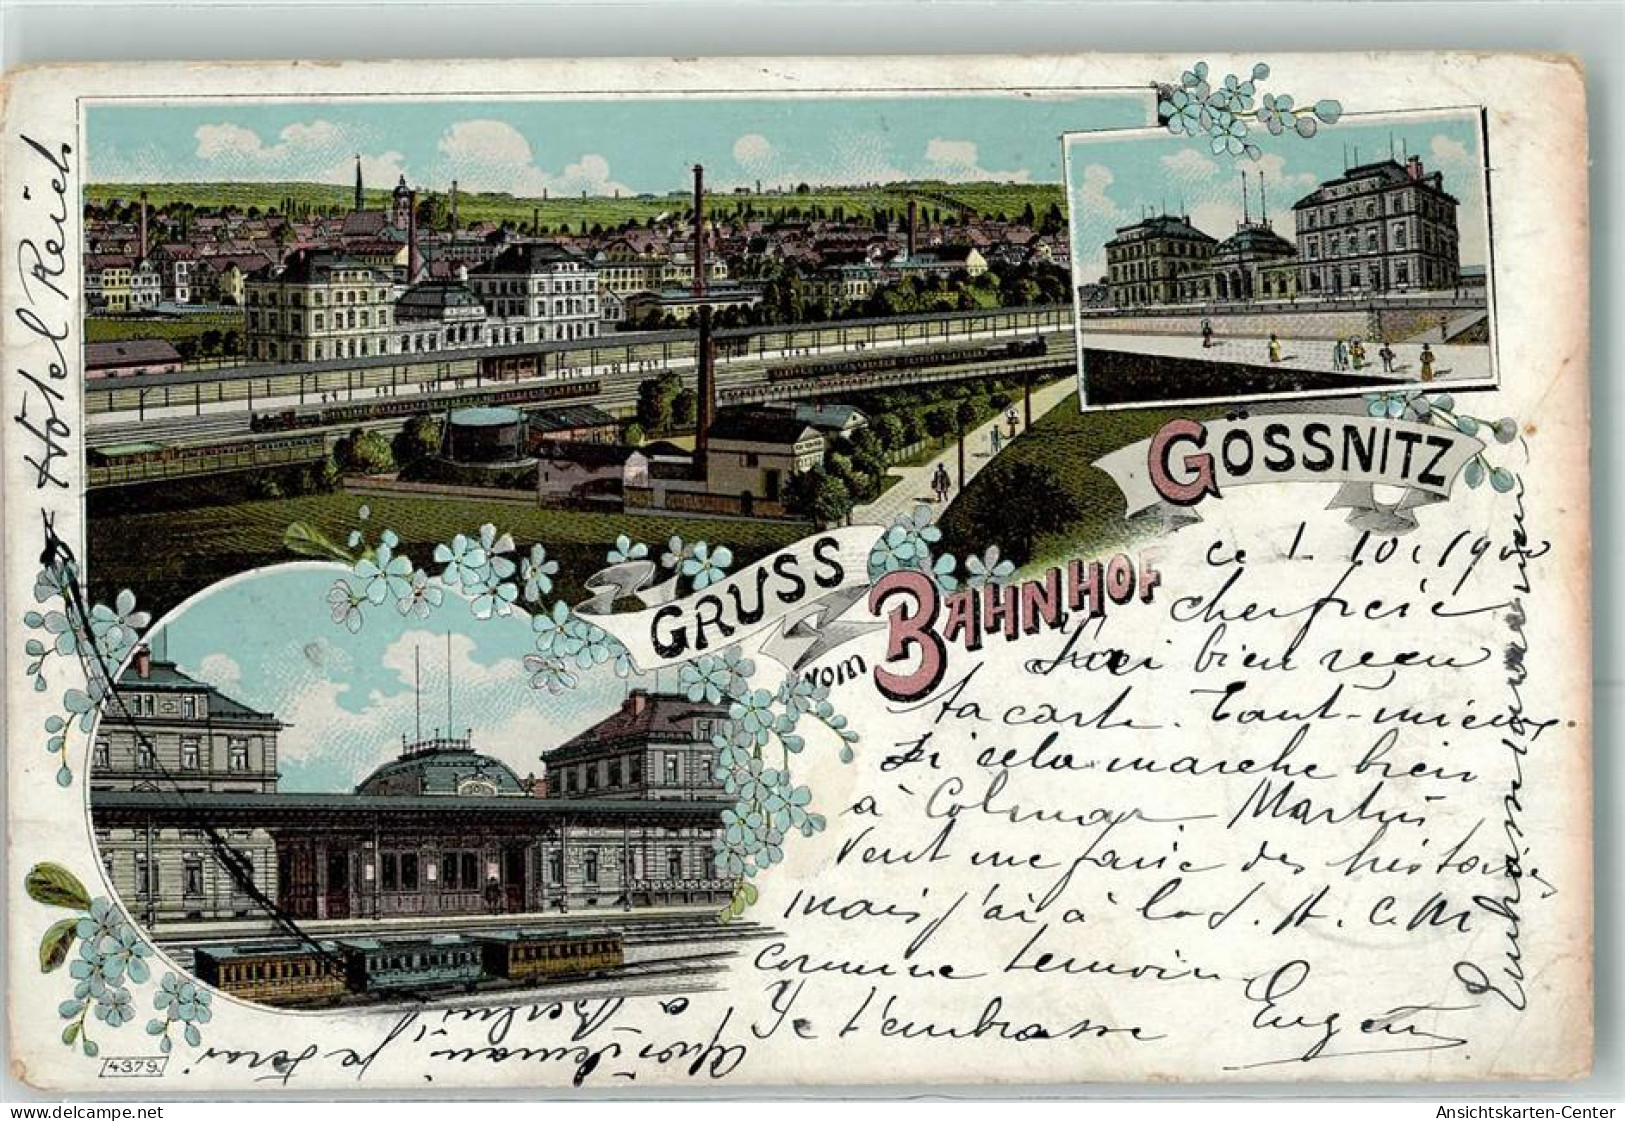 GÖSSNITZ
GRUSS
VOM BAHNHOF
ce 1 10. 1900
cher frère
J'ai bien reçu
ta carte. Tant-mieux
si cela marche bien
à Colmar Martin
vent me faire des histoires
mais j'ai à la S. A. C. M
comme temoin
Je t'embrasse Eugen
Hotel Reich
je serai
a Berlin
4379.
delcampe.net
Ansichtskarten-Center